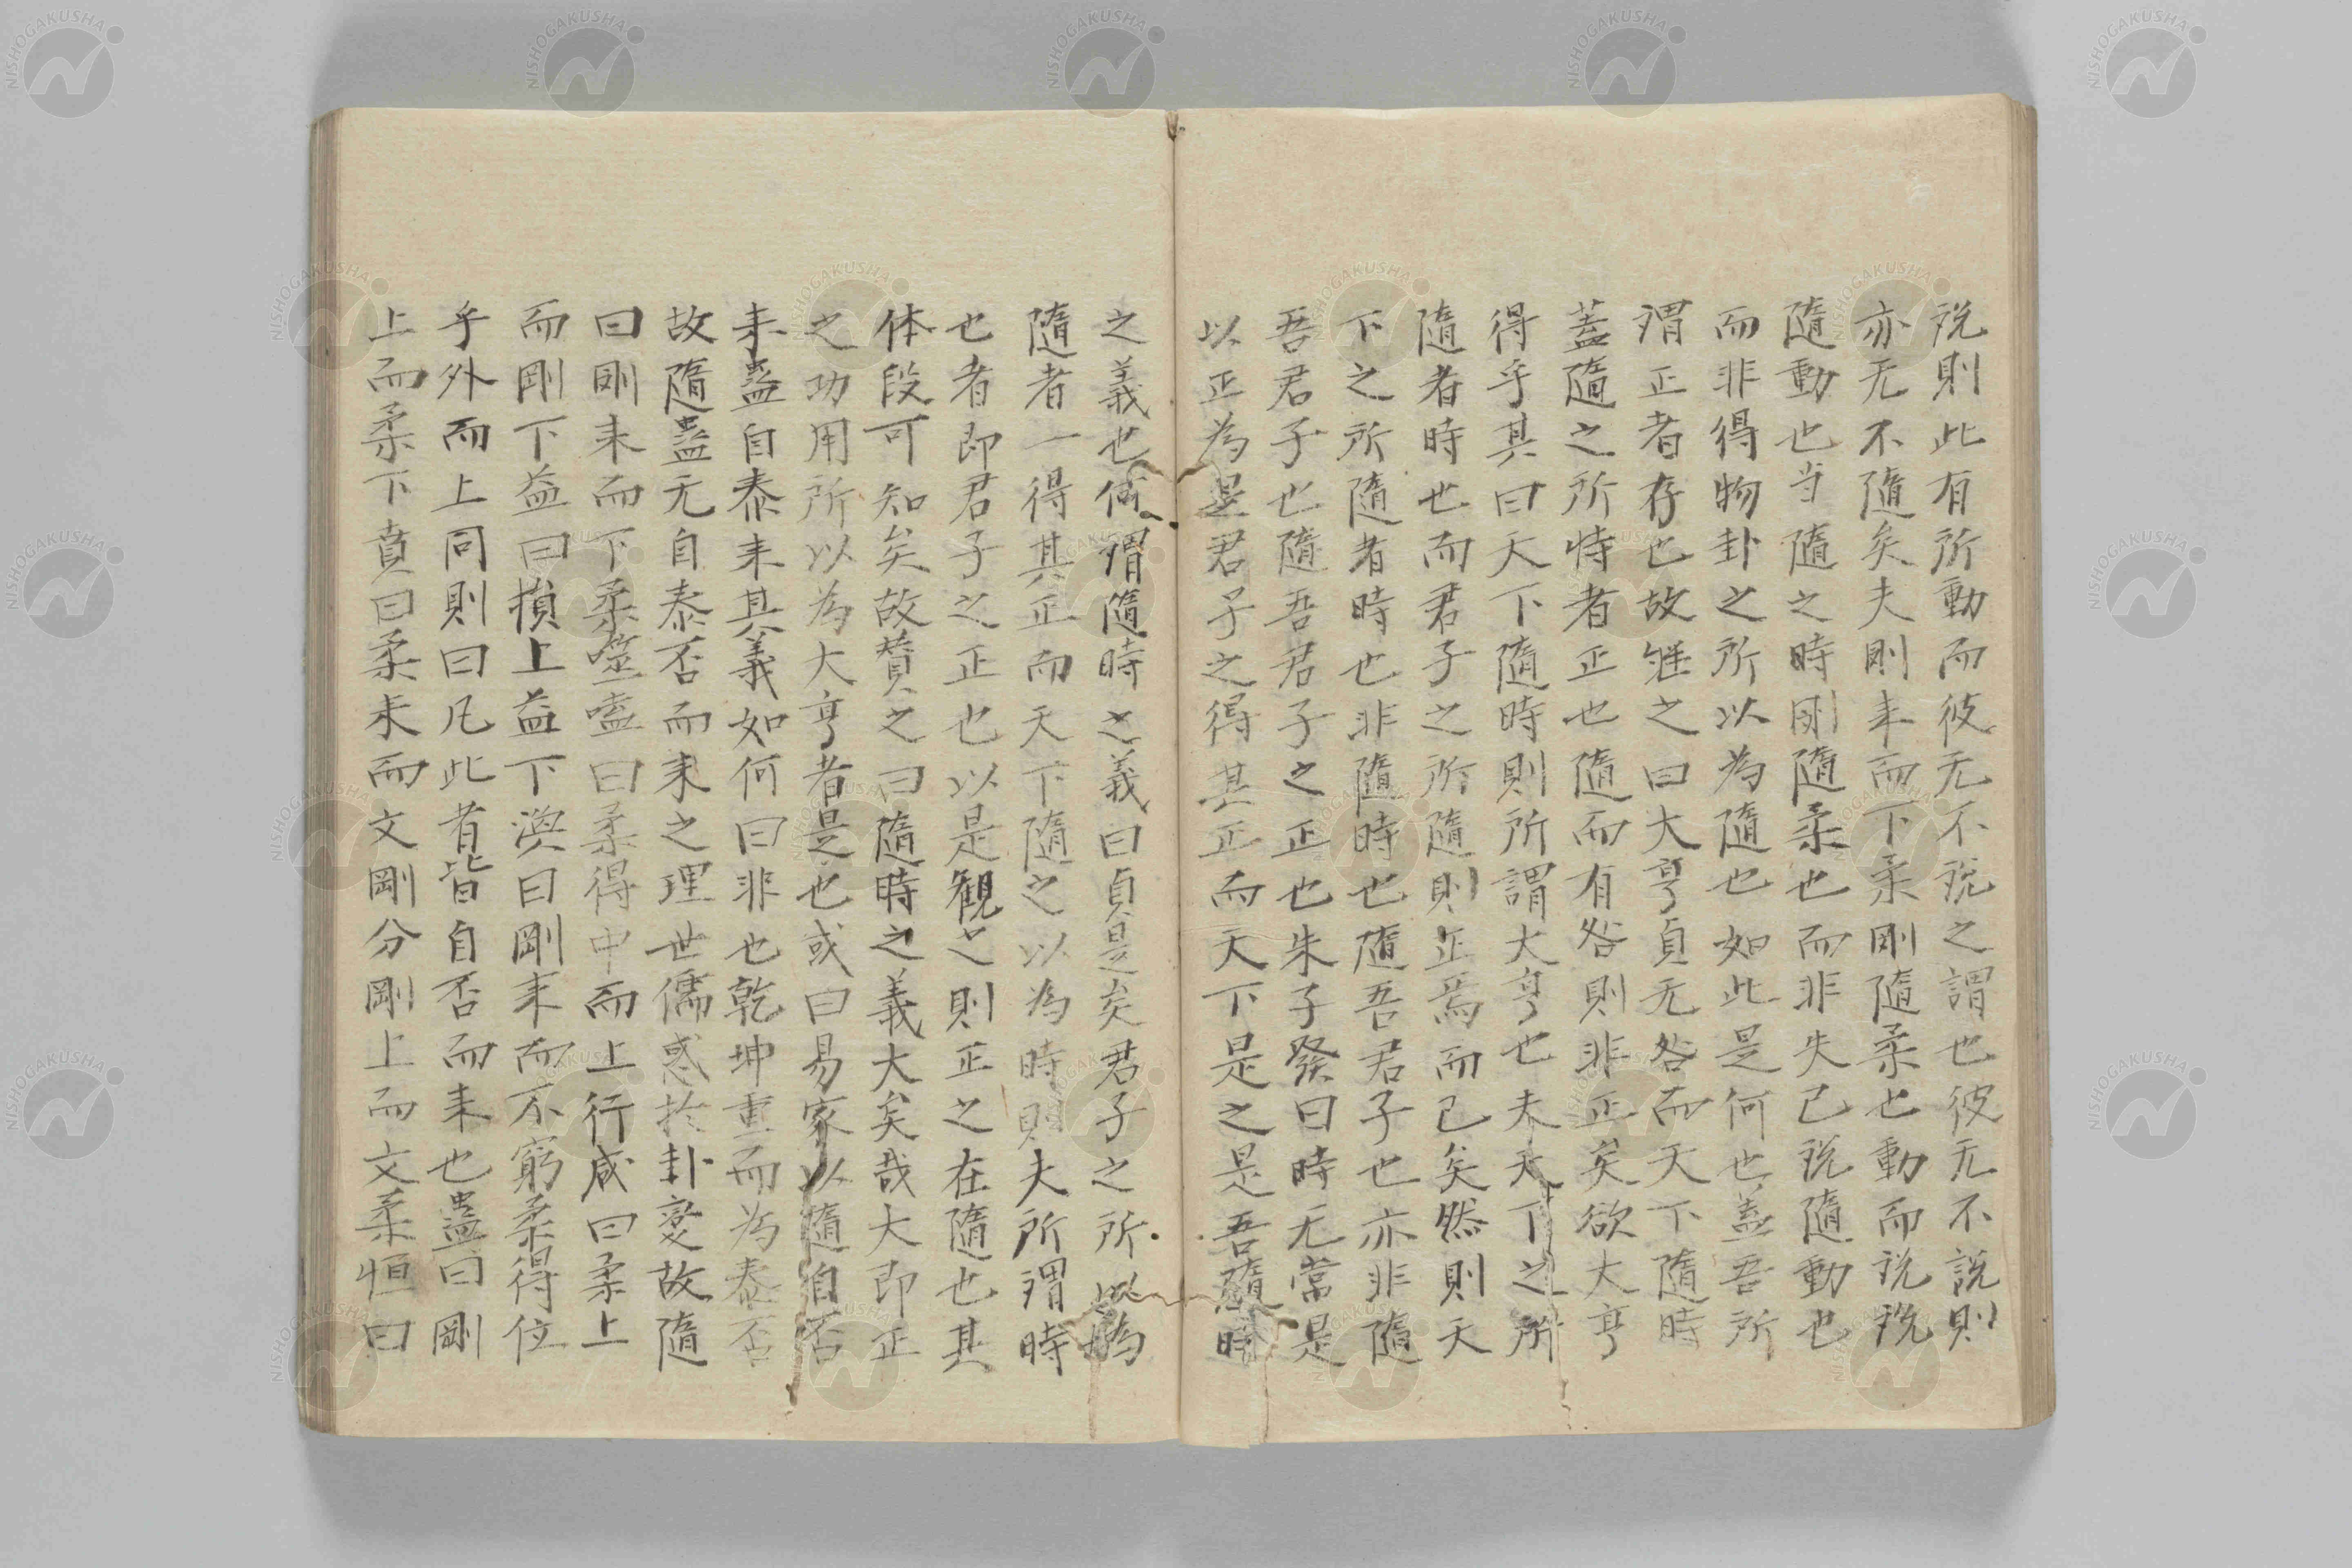 説則此有所動而彼无不説之謂也彼无不説則
亦无不隨矣夫剛来而下柔剛隨柔也動而説説
隨動也当隨之時剛隨柔也而非失己説隨動也
而非得物卦之所以為隨也如此是何也蓋吾所
謂正者存也故継之曰大亨貞无咎而天下隨時
蓋隨之所恃者正也隨而有咎則非正矣欲大亨
得乎其曰天下隨時則所謂大亨也夫天下之所
隨者時也而君子之所隨則正焉而已矣然則天
下之所隨者時也非隨時也隨吾君子也亦非隨
吾君子也隨吾君子之正也朱子発曰時无常是
以正為是君子之得其正而天下是之是吾隨時
之義也何謂隨時之義曰貞是矣君子之所以為
隨者一得其正而天下隨之以為時則夫所謂時
也者即君子之正也以是観之則正之在隨也其
体段可知矣故賛之曰隨時之義大矣哉大即正
之功用所以為大亨者是也或曰易家以隨自否
来蠱自泰来其義如何曰非也乾坤重而為泰否
故隨蠱无自泰否而来之理世儒惑於卦変故隨
曰剛来而下柔噬嗑曰柔得中而上行咸曰柔上
而剛下益曰損上益下渙曰剛来而不窮柔得位
乎外而上同則曰凡此者皆自否而来也蠱曰剛
上而柔下賁曰柔来而文剛分剛上而文柔恒曰
NISHOGAKUSHA